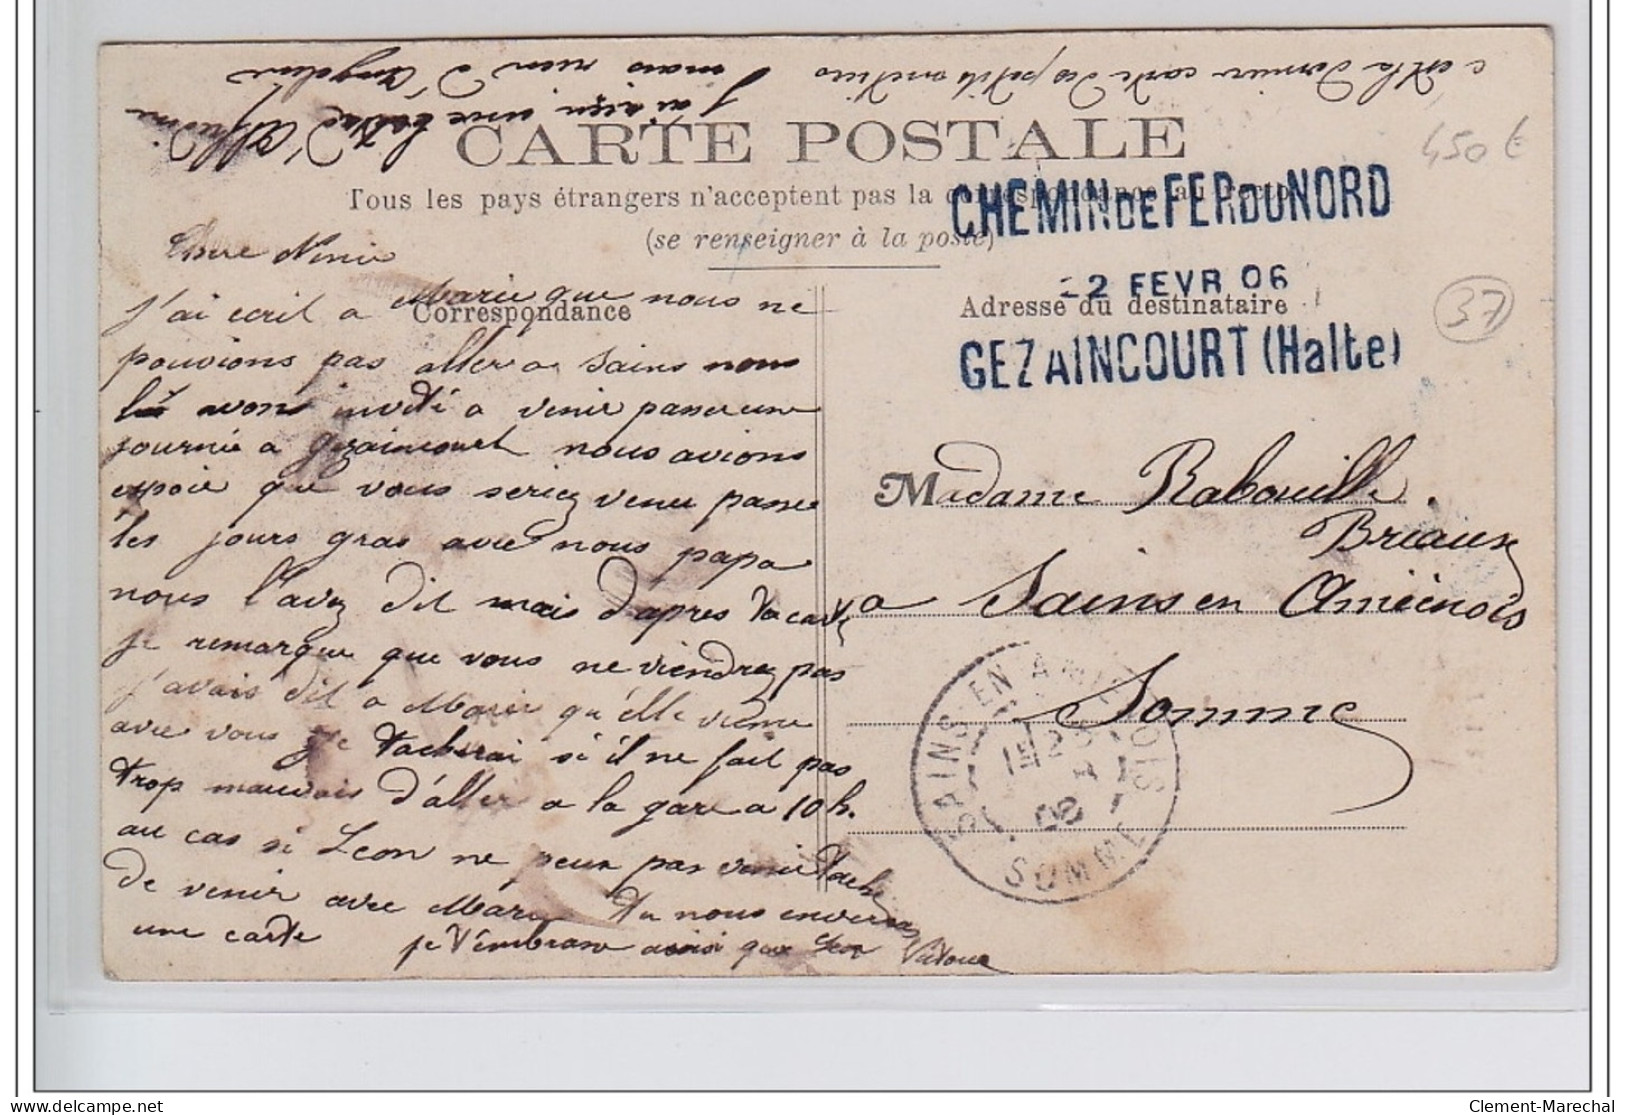 c est la dernier carte des petits
j'ai reçu une carte d'
mais rien d'Angeline
450 €
CARTE POSTALE
Tous les pays étrangers n'acceptent pas la correspondance au recto
(se renseigner à la poste)
CHEMIN DE FER DU NORD
22 FEVR 06
GEZAINCOURT (Halte)
37
Correspondance
Adresse du destinataire
Chere Ninie
J'ai ecrit a Marie que nous ne
pouvions pas aller a Sains nous
avons invité a venir passer une
journée a Gezaincourt nous avions
espoir que vous seriez venu passer
les jours gras avec nous papa
nous l'avez dit mais d'apres ta carte
je remarque que vous ne viendrez pas
j'avais dit a Marie qu'elle vienne
avec vous je tacherai si il ne fait pas
trop mauvais d'aller a la gare a 10h.
au cas si Leon ne peux pas venir tache
de venir avec Marie tu nous enverras
une carte je t'embrasse ainsi que Leon
Madame Rabouille
Briaux
a Sains en Amienois
Somme
SAINS-EN-AMIENOIS
SOMME
Clement-Marechal